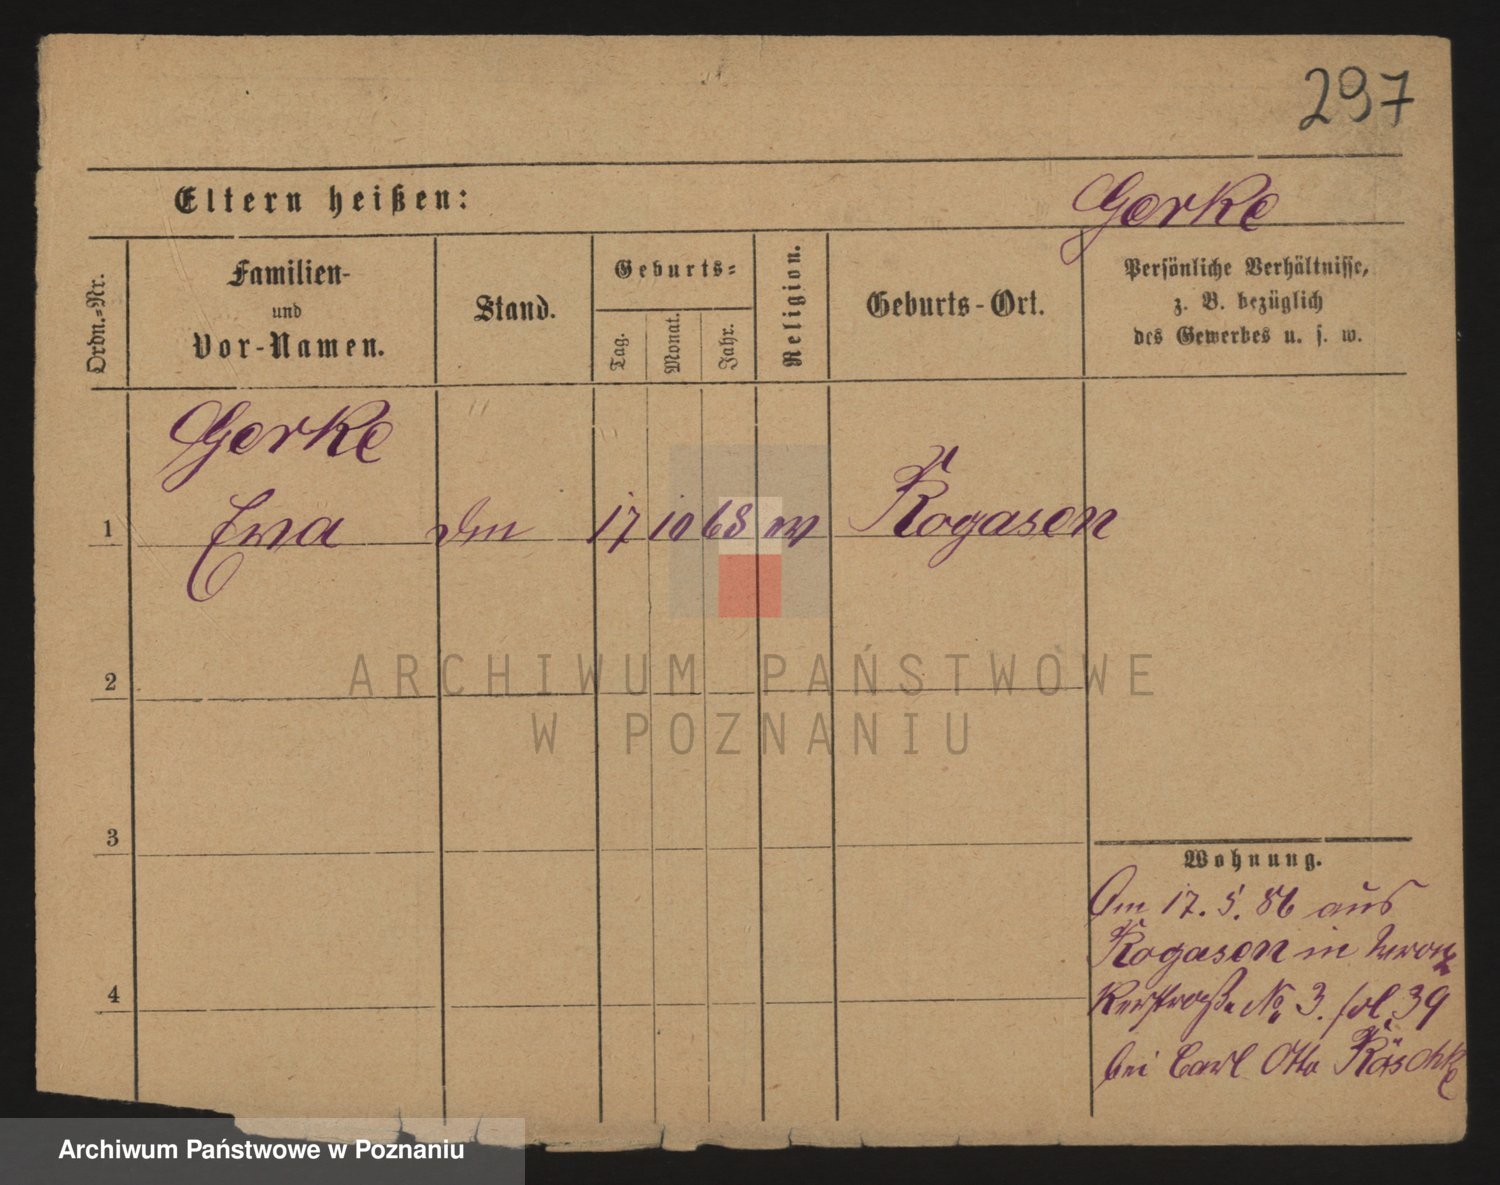 297
Eltern heißen:
Gerke
Ordn.-Nr.
Familien-
und
Vor-Namen.
Stand.
Geburts-
Tag.
Monat.
Jahr.
Religion.
Geburts-Ort.
Persönliche Verhältnisse,
z. B. bezüglich
des Gewerbes u. s. w.
Gerke
1 Eva 17 10 68 Rogasen
2
3
4
Wohnung.
Am 17. 5. 86 aus
Rogasen in Wron
kerstraße No 3. fol. 39
bei Carl Otto Röschke
ARCHIWUM PAŃSTWOWE
W POZNANIU
Archiwum Państwowe w Poznaniu